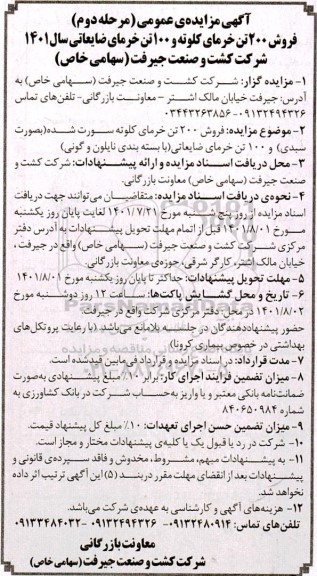 آگهی مزایده‌ی عمومی (مرحله دوم)
فروش ۲۰۰ تن خرمای کلوته و ۱۰۰ تن خرمای ضایعاتی سال ۱۴۰۱
شرکت کشت و صنعت جیرفت (سهامی خاص)
۱- مزایده گزار: شرکت کشت و صنعت جیرفت (سهامی خاص) به
آدرس: جیرفت خیابان مالک اشتر – معاونت بازرگانی- تلفن‌های تماس
۰۹۱۳۲۴۹۴۳۲۶-۰۳۴۴۳۲۶۳۸۵۶
۲- موضوع مزایده: فروش ۲۰۰ تن خرمای کلوته سورت شده(بصورت
سبدی) و ۱۰۰ تن خرمای ضایعاتی(با بسته بندی نایلون و گونی)
۳- محل دریافت اسناد مزایده و ارائه پیشنهادات: شرکت کشت و
صنعت جیرفت (سهامی خاص) معاونت بازرگانی.
۴- نحوه‌ی دریافت اسناد مزایده: متقاضیان می‌توانند جهت دریافت
اسناد مزایده از روز پنج شنبه مورخ ۱۴۰۱/۷/۲۱ لغایت پایان روز یکشنبه
مورخ ۱۴۰۱/۸/۰۱ قبل از اتمام مهلت تحویل پیشنهادات به آدرس دفتر
مرکزی شرکت کشت و صنعت جیرفت (سهامی خاص) واقع در جیرفت،
خیابان مالک اشتر، کارگر شرقی، حوزه‌ی معاونت بازرگانی.
۵- مهلت تحویل پیشنهادات: حداکثر تا پایان روز یکشنبه مورخ ۱۴۰۱/۸/۰۱
۶- تاریخ و محل گشایش پاکت‌ها: ساعت ۱۲ روز دوشنبه مورخ
۱۴۰۱/۸/۰۲ در محل دفتر مرکزی شرکت واقع در جیرفت.
حضور پیشنهاددهندگان در جلسه بلامانع می‌باشد. (با رعایت پروتکل‌های
بهداشتی در خصوص بیماری کرونا)
۷- مدت قرارداد: در اسناد مزایده و قرارداد فی مابین قید شده است.
۸- میزان تضمین فرایند اجرای کار: برابر ۱۰٪ مبلغ پیشنهادی به‌صورت
ضمانت‌نامه بانکی معتبر و یا واریز به‌حساب شرکت در بانک کشاورزی به
شماره ۸۴۰۶۵۰۹۸۴
۹- میزان تضمین حسن اجرای تعهدات: ۱۰٪ مبلغ کل پیشنهاد قیمت.
۱۰- شرکت در رد یا قبول یک یا کلیه‌ی پیشنهادات مختار و مجاز است.
۱۱- به پیشنهادات مبهم، مشروط، مخدوش و فاقد سپرده‌ی قانونی و
پیشنهادات بعد از انقضای مهلت مقرر در بند (۵) این آگهی ترتیب اثر داده
نخواهد شد.
۱۲- هزینه‌های آگهی و کارشناسی به عهده‌ی شرکت می‌باشد.
تلفن‌های تماس: ۰۹۱۳۲۴۸۰۹۱۴- ۰۹۱۳۲۴۹۴۳۲۶ -۰۹۱۳۳۴۸۴۰۳۲
معاونت بازرگانی
شرکت کشت و صنعت جیرفت (سهامی خاص)